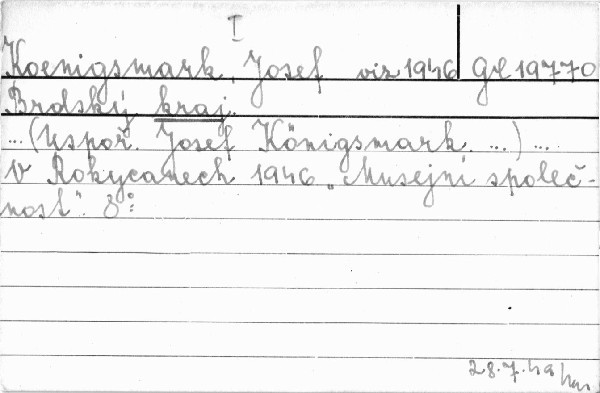 I
Koenigsmark, Josef viz 1946 Gl 19770
Brdský kraj.
... (Uspoř. Josef Königsmark. ...) ...
V Rokycanech 1946 „Musejní společ-
nost". 8°.
28.7.